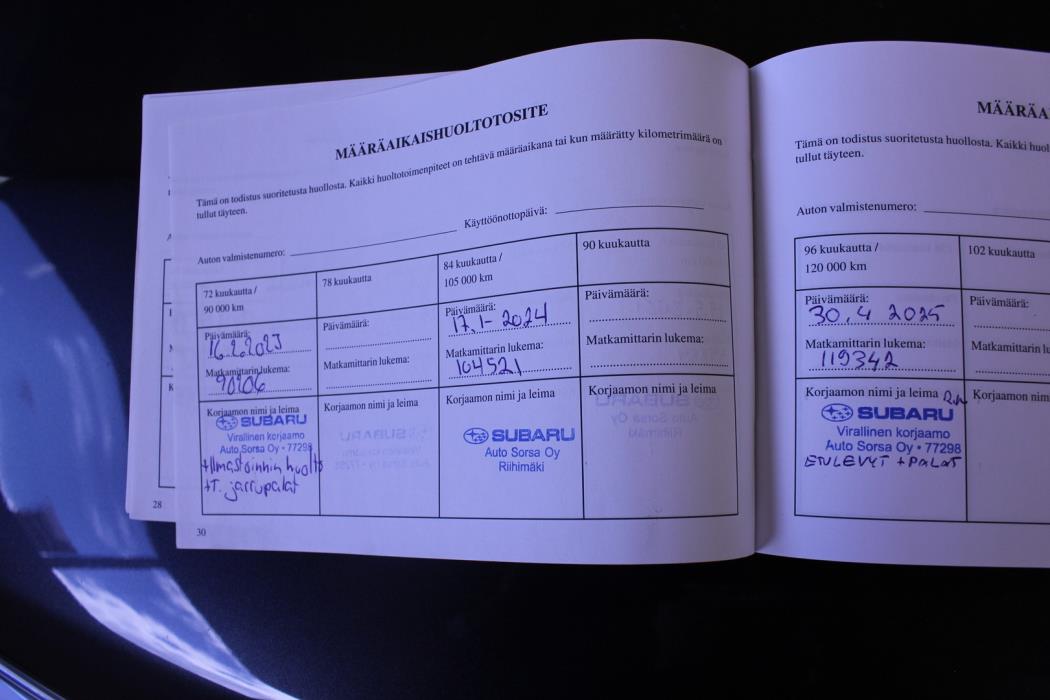 MÄÄRÄAIKAISHUOLTOTOSITE
Tämä on todistus suoritetusta huollosta. Kaikki huoltotoimenpiteet on tehtävä määräaikana tai kun määrätty kilometrimäärä on
tullut täyteen.
Auton valmistenumero: Käyttöönottopäivä:
72 kuukautta /
90 000 km
Päivämäärä:
16.2.2023
Matkamittarin lukema:
90206
Korjaamon nimi ja leima
SUBARU
Virallinen korjaamo
Auto Sorsa Oy • 77298
+Ilmastoinnin huolto
+T. jarrupalat
78 kuukautta
Päivämäärä:
Matkamittarin lukema:
Korjaamon nimi ja leima
84 kuukautta /
105 000 km
Päivämäärä:
17.1-2024
Matkamittarin lukema:
104521
Korjaamon nimi ja leima
SUBARU
Auto Sorsa Oy
Riihimäki
90 kuukautta
Päivämäärä:
Matkamittarin lukema:
Korjaamon nimi ja leima
28
30
MÄÄRÄA
Tämä on todistus suoritetusta huollosta. Kaikki huol
tullut täyteen.
Auton valmistenumero:
96 kuukautta /
120 000 km
Päivämäärä:
30.4 2025
Matkamittarin lukema:
119342
Korjaamon nimi ja leima
SUBARU
Virallinen korjaamo
Auto Sorsa Oy • 77298
ETULEVYT + PALAT
102 kuukautta
Päivämäärä:
Matkamittarin lu
Korjaamon nim